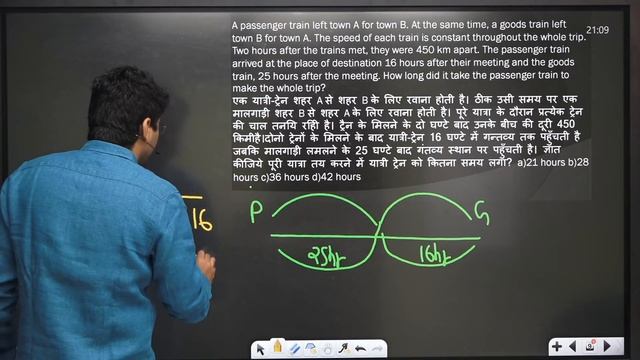 A passenger train left town A for town B. At the same time, a goods train left
town B for town A. The speed of each train is constant throughout the whole trip.
Two hours after the trains met, they were 450 km apart. The passenger train
arrived at the place of destination 16 hours after their meeting and the goods
train, 25 hours after the meeting. How long did it take the passenger train to
make the whole trip?
एक यात्री-ट्रेन शहर A से शहर B के लिए रवाना होती है। ठीक उसी समय पर एक
मालगाड़ी शहर B से शहर A के लिए रवाना होती है। पूरे यात्रा के दौरान प्रत्येक ट्रेन
की चाल तनयि रहिी है। ट्रैन के मिलने के दो घण्टे बाद उनके बीच की दूरी 450
किमीहै।दोनो ट्रेनों के मिलने के बाद यात्री-ट्रेन 16 घण्टे में गन्तव्य तक पहुँचती है
जबकि मालगाड़ी लमलने के 25 घण्टे बाद गंतव्य स्थान पर पहुँचती है। ज्ञात
कीजिये पूरी यात्रा तय करने में यात्री ट्रेन को कितना समय लगा? a)21 hours b)28
hours c)36 hours d)42 hours
21:09
P G
25hr 16hr
16